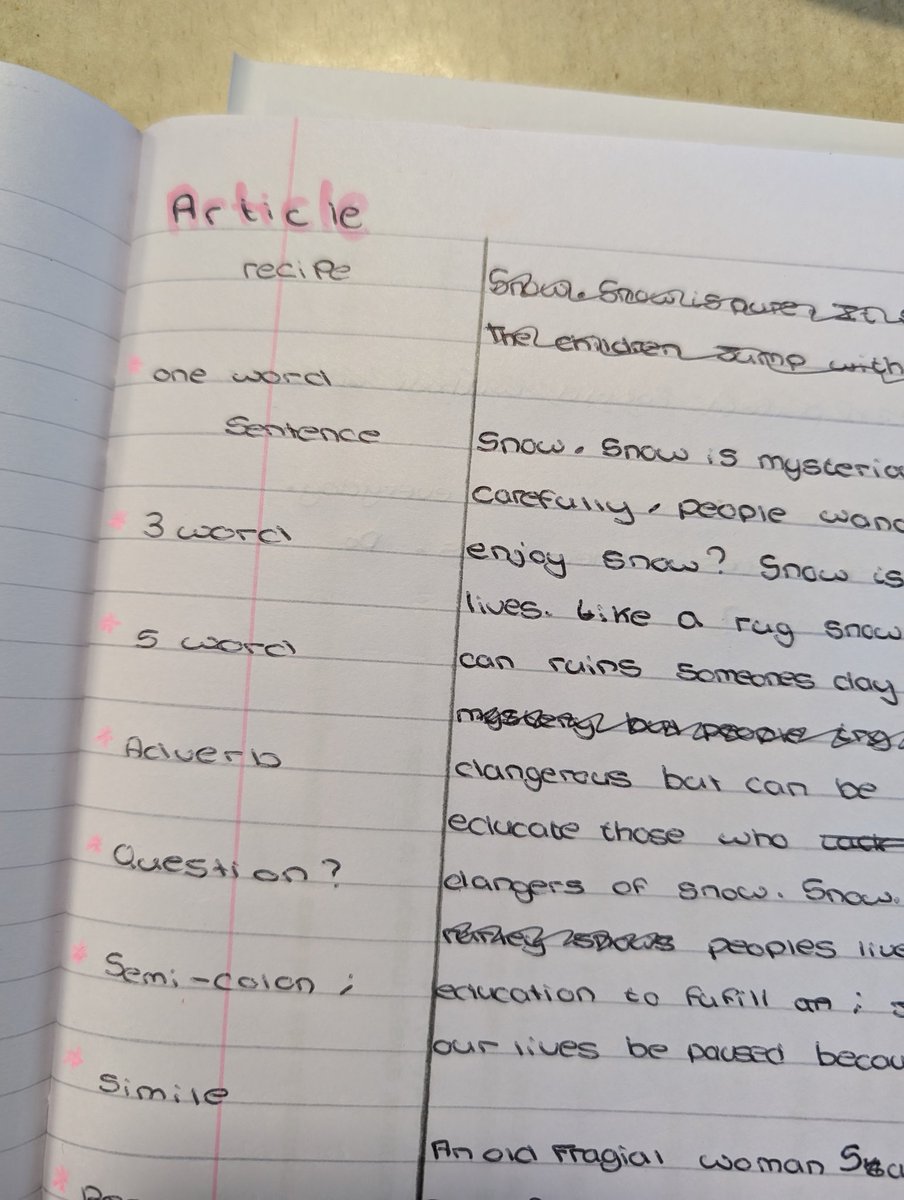 Article
recipe
one word
Sentence
3 word
5 word
Adverb
Question?
Semi-colon ;
Simile
Snow. Snow is
The children Jump with
Snow. Snow is
carefully, people
enjoy snow? Snow is
lives. Like a rug snow
can ruins someones day
dangerous but can be
educate those who
dangers of snow. Snow.
peoples
education to fufill an ;
our lives be paused
An old fragial woman